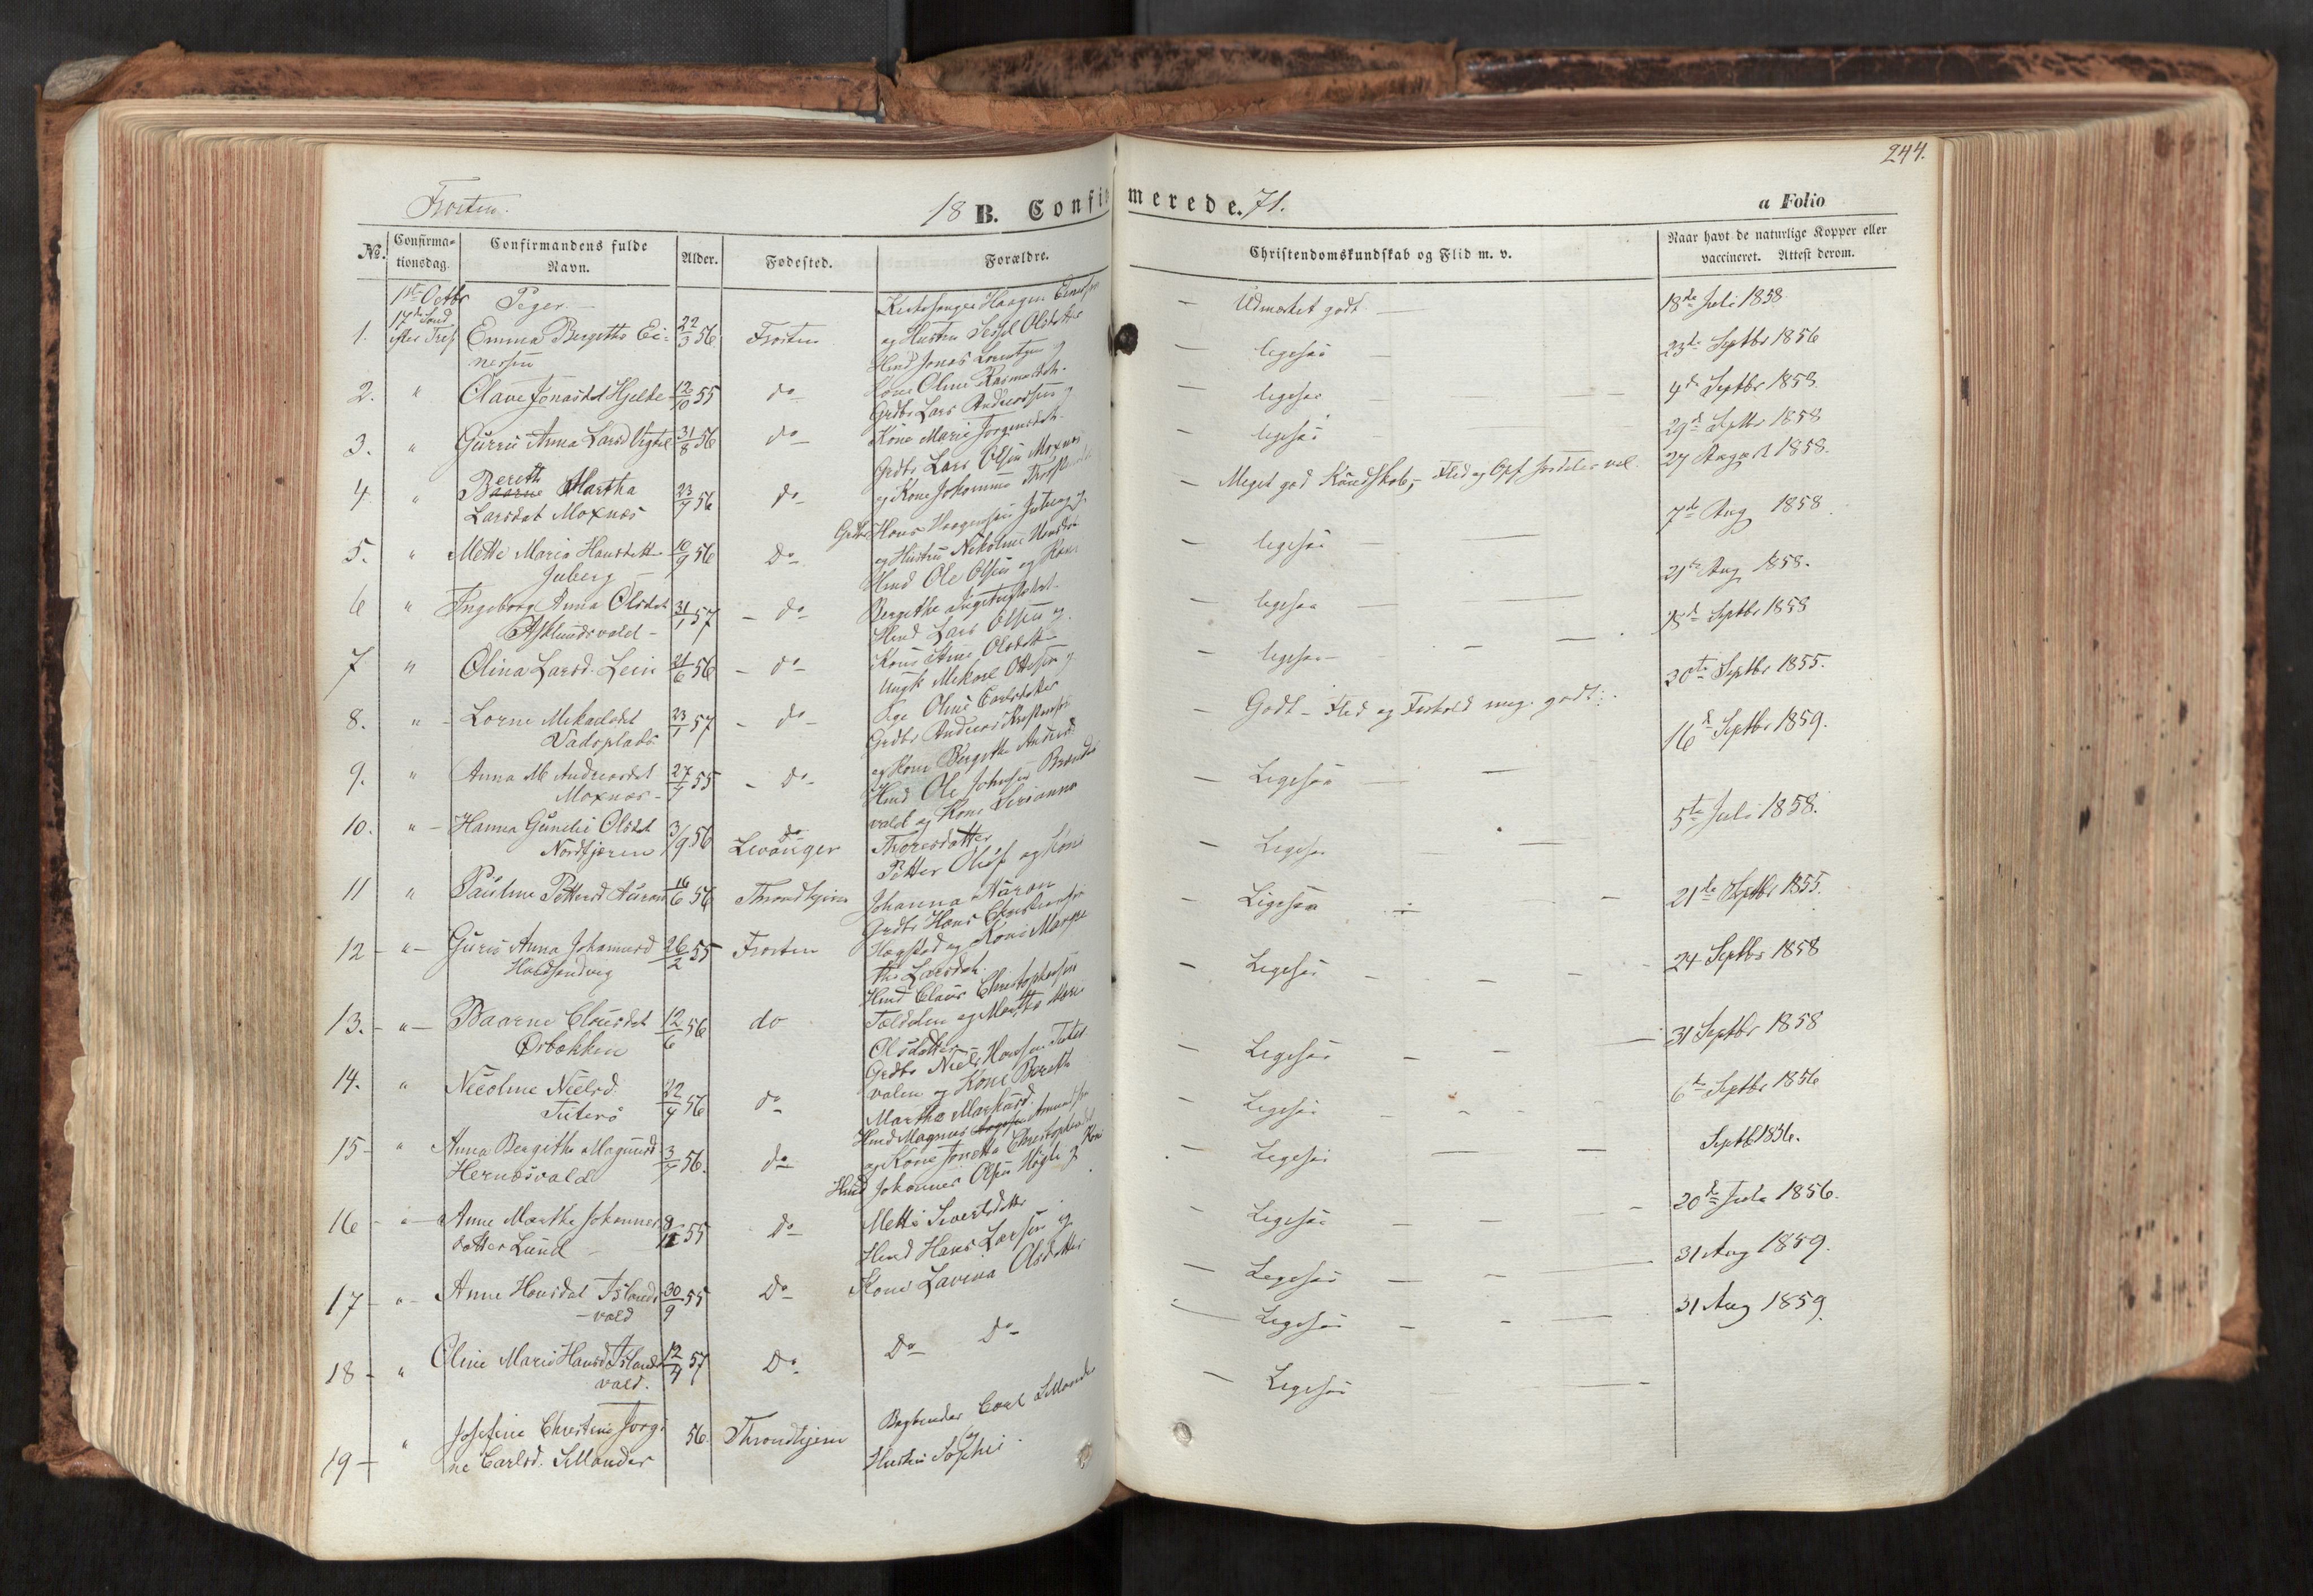 Frosten.
18 B. Confirmerede. 71.
a Folio
244.
No.
Confirma=
tionsdag.
Confirmandens fulde
Navn.
Alder.
Fødested.
Forældre.
Christendomskundskab og Flid m. v.
Naar havt de naturlige Kopper eller
vaccineret. Attest derom.
1ste Octbr
17de Sønd
efter Tref
Piger
1. Emma Bergitte Ei=
nersen
22/3 56
Frosten
Kirkesanger Haagen Einersen
og Hustru Sessel Olsdatter
Udmærket godt
18de Juli 1858
2. " Olave Jonasdat Hjelde 12/10 55 do
Hmd Jonas Lorentzen og
Kone Oline Rasmusdtr.
ligesaa
23de Septbr 1856
3. " Gurru Anna Larsd Vigtel 31/8 56 do
Grdbr Lars Andreassen og
Kone Marie Jørgensdtr.
ligesaa
4de Septbr 1858.
4. " Bereth
Baarne Martha
Larsdat Moxnæs
23/9 56 do
Grdbr Lars Olsen Moxnæs
og Kone Johanna
ligesaa
29de Septbr 1858
5. " Mette Maria Hansdatt
Juberg
10/9 56 do
Grdbr Hans Haagensen Juberg
og Hustru Nikoline
Meget god Kundskab, Flid og Opf
27 August 1858.
6 " Ingeborg Anna Olsdat
Asklundsvald
31/1 57 do
Hmd Ole Olsen og Kone
Bergithe
ligesaa
7de Aug 1858
7 " Olina Larsd. Lein 21/6 56 do
Hmd Lars Olsen og
Kone Ane Olsdatter
ligesaa
21de Aug 1858.
8. " Lorne Mikaelsdat
Vadsplads
23/1 57 do
Ungk Mekael Ottesen og
Pge Oline Carlsdatter
ligesaa
18de Septbr 1858
9. " Anna M Andreasdat
Moxnæs
27/7 55 do
Grdbr Andreas
og Kone Bergitha
Godt - Flid og Forhold meg. godt.
20de Septbr 1855.
10. " Hanna Gundei Olsdat
Nordfjæren
3/9 56 do
Levanger
Hmd Ole Johnsen
vald og Kone Serianna
Thoresdatter
Ligesaa
16de Septbr 1859.
11 " Pauline Pettersd Auran 16/6 56 Throndhjem
Petter Olsen og Kone
Johanna Auran
Ligesaa
5te Juli 1858.
12 " Guru Anna Johannesd
Holdsandvig
26/2 55 Frosten
Grdbr Hans Christensen
Hogstad og Kone Marge
the Larsdtr.
Ligesaa
21de Septbr 1855.
13. " Baarne Clausdat
Ørbækken
12/6 56 do
Hmd Claus Christophersen
og Martha Marie
Olsdatter
Ligesaa
24 Septbr 1858
14. " Nicoline Nielsd.
Tuterø
22/4 56 do
Grdbr Niels Hansen Tuter
valen og Kone Bereth
Martha Markusd.
Ligesaa
31 Septbr 1858
15 " Anna Bergitha Magnusd
Hernæsvald
3/7 56. do
Hmd Magnus Amundsen
og Kone Jonetta Christophersd
Ligesaa
6te Septbr 1856
16 " Anne Martha Johannes
datter Lund
55 do
Hmd Johannes Olsen og Kone
Mette Sivertsdatter
Ligesaa
Septbr 1856.
17 " Anne Hansdat Islands
vald
30/9 55 Do
Hmd Hans Larsen og
Kone Lavina Olsdatter
Ligesaa
20de Juli 1856.
18 " Oline Marie Hansd Islands
vald.
12/4 57 Do
Do Do
Ligesaa
31 Aug 1859.
19 " Josefine Christine Jørgi
ne Carlsd. Sillander
56 Throndhjem
Bogbinder Carl Sillander
og
Hustru Sophie
Ligesaa
31 Aug 1859.
Ligesaa